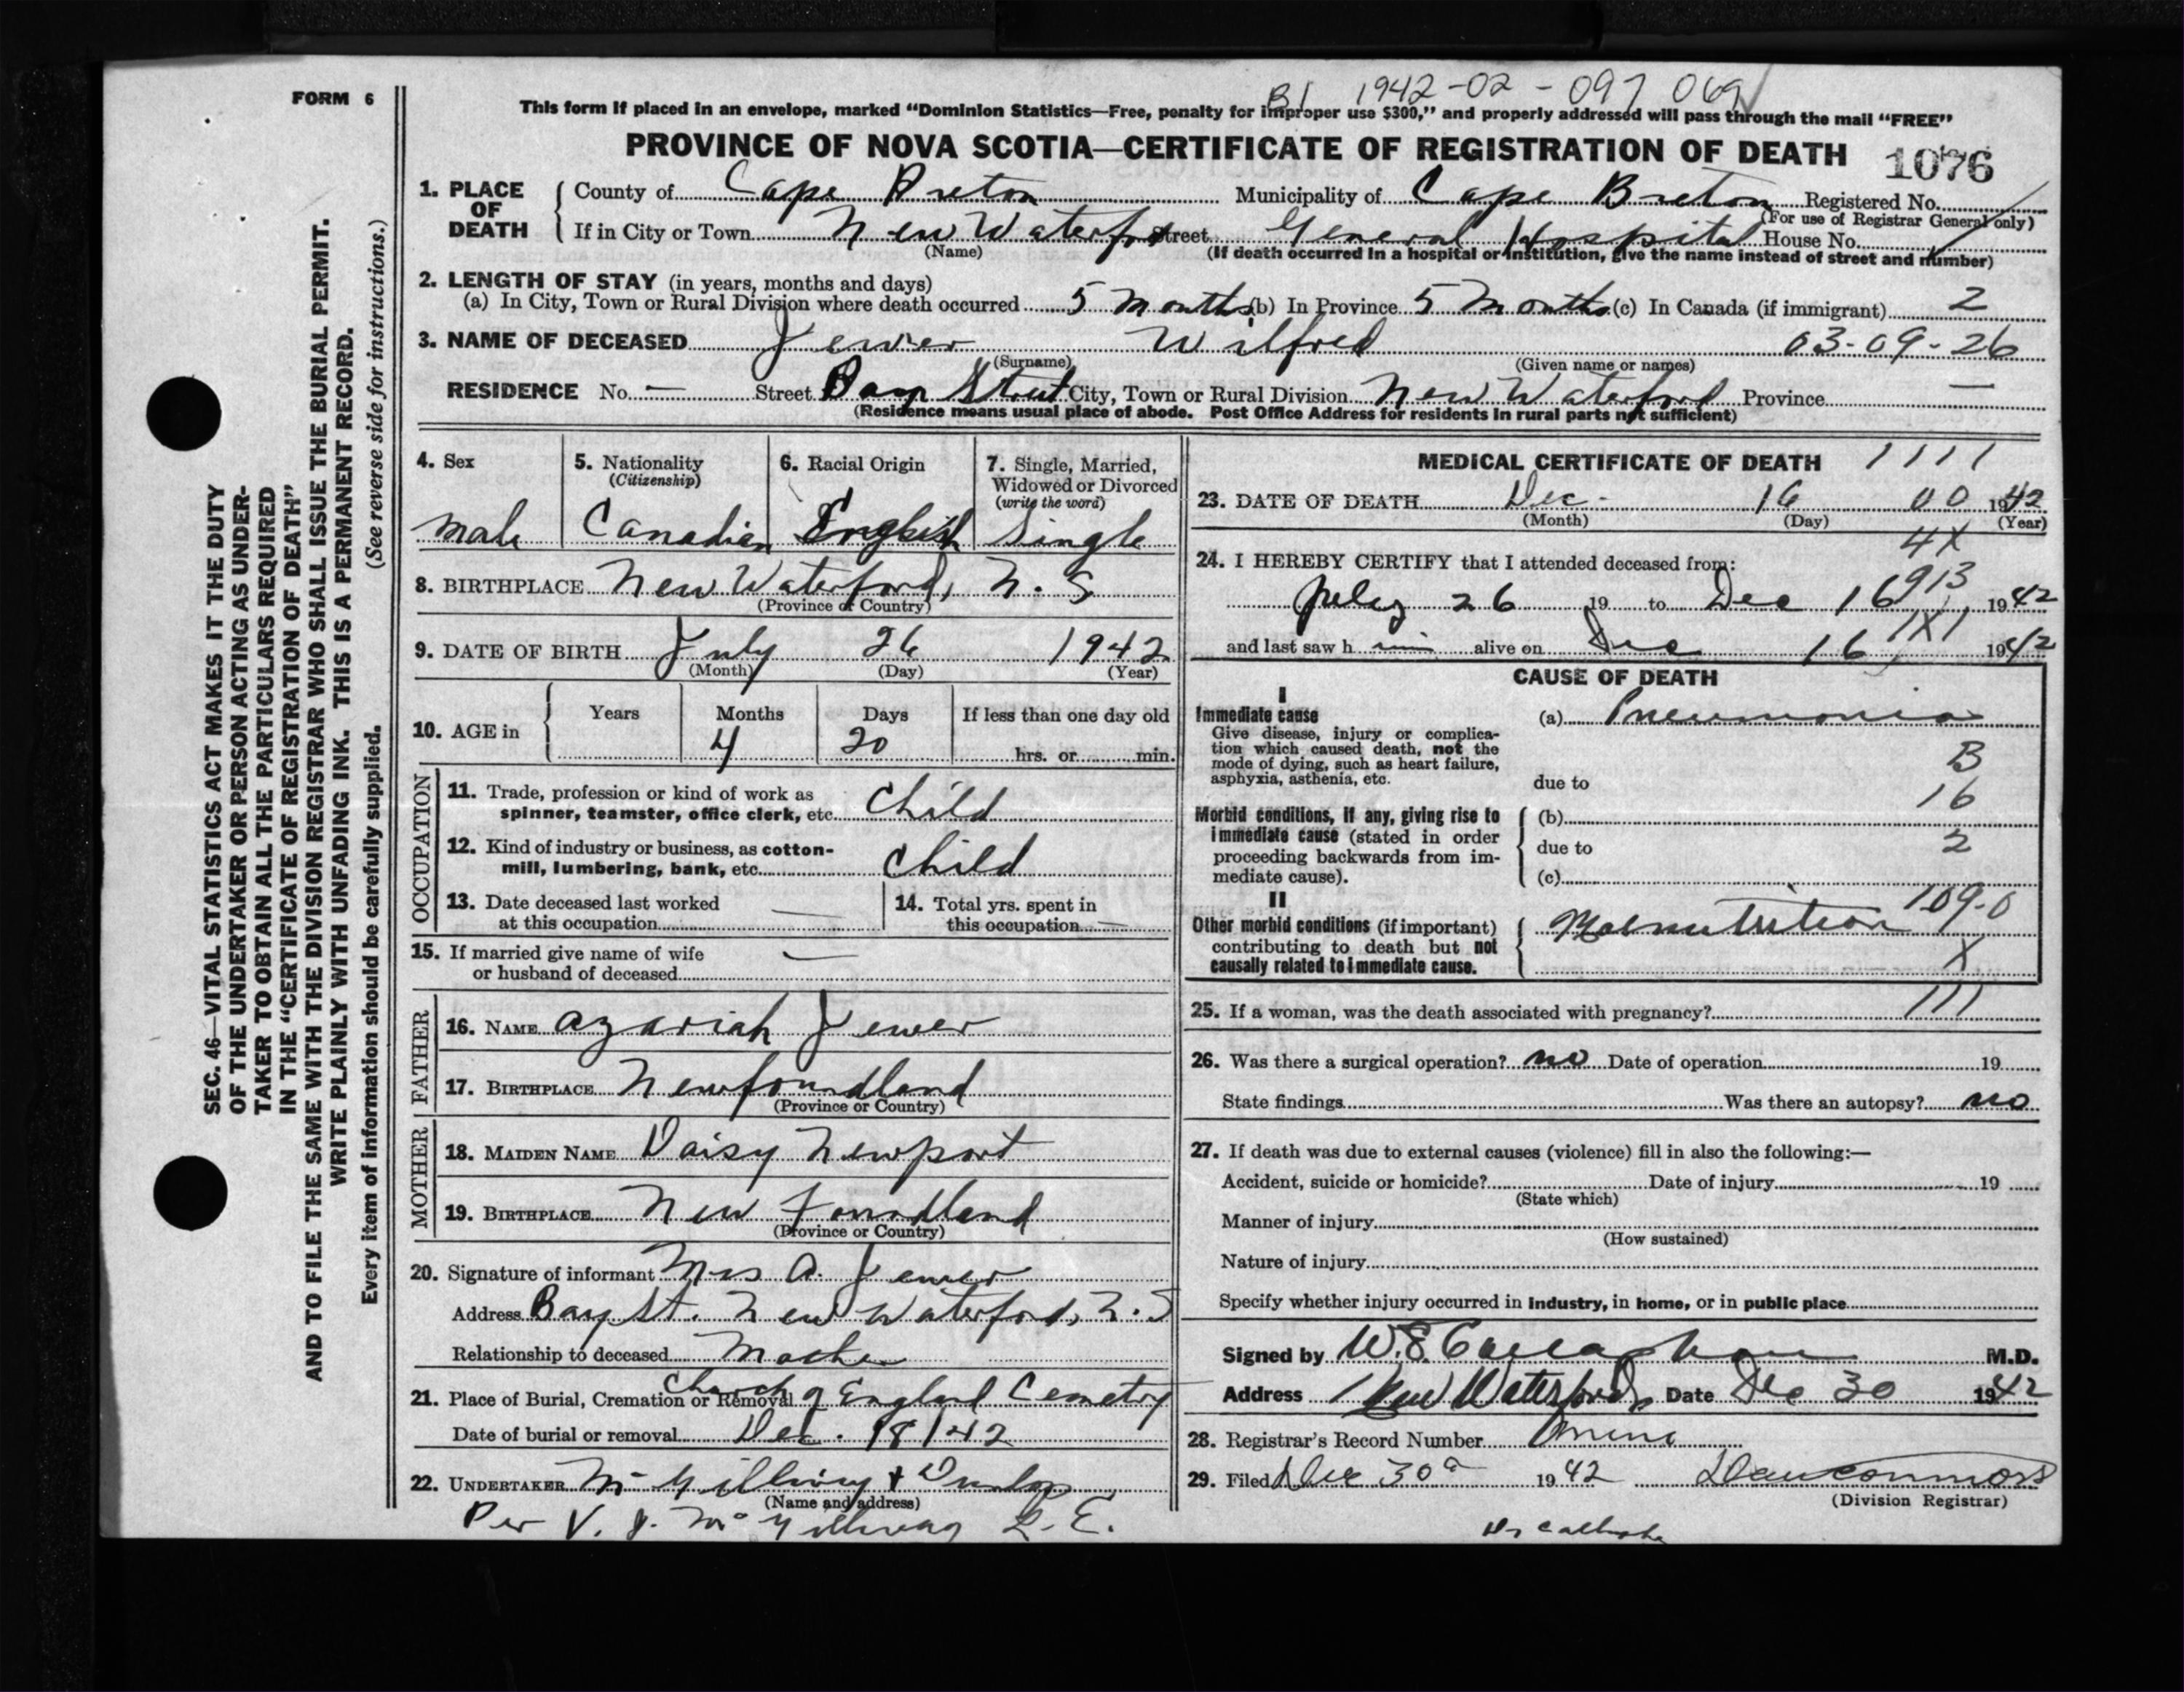 B1 1942-02-097069
FORM 6
This form if placed in an envelope, marked “Dominion Statistics—Free, penalty for improper use $300,” and properly addressed will pass through the mail “FREE”
PROVINCE OF NOVA SCOTIA—CERTIFICATE OF REGISTRATION OF DEATH 1076
1. PLACE OF DEATH County of Cape Breton Municipality of Cape Breton Registered No.
(For use of Registrar General only)
If in City or Town New Waterford Street General Hospital House No.
(Name) (If death occurred in a hospital or institution, give the name instead of street and number)
2. LENGTH OF STAY (in years, months and days)
(a) In City, Town or Rural Division where death occurred 5 Months (b) In Province 5 Months (c) In Canada (if immigrant) 2
3. NAME OF DECEASED Jewer Wilfred 03-09-26
(Surname) (Given name or names)
RESIDENCE No. — Street Bay Street City, Town or Rural Division New Waterford Province —
(Residence means usual place of abode. Post Office Address for residents in rural parts not sufficient)
4. Sex 5. Nationality 6. Racial Origin 7. Single, Married,
(Citizenship) Widowed or Divorced
(write the word)
Male Canadian English Single
8. BIRTHPLACE New Waterford, N. S
(Province or Country)
9. DATE OF BIRTH July 26 1942
(Month) (Day) (Year)
10. AGE in Years Months Days If less than one day old
4 20 hrs. or min.
OCCUPATION
11. Trade, profession or kind of work as
spinner, teamster, office clerk, etc. Child
12. Kind of industry or business, as cotton-
mill, lumbering, bank, etc. Child
13. Date deceased last worked 14. Total yrs. spent in
at this occupation — this occupation —
15. If married give name of wife
or husband of deceased —
FATHER
16. NAME Azariah Jewer
17. BIRTHPLACE Newfoundland
(Province or Country)
MOTHER
18. MAIDEN NAME Daisy Newport
19. BIRTHPLACE New Foundland
(Province or Country)
20. Signature of informant Mrs A. Jewer
Address Bay St. New Waterford, N.S
Relationship to deceased Mother
21. Place of Burial, Cremation or Removal Church of England Cemetry
Date of burial or removal Dec. 18/42
22. UNDERTAKER McGillivray & Dunlop
(Name and address)
Per V. J. McGillivray L. E.
MEDICAL CERTIFICATE OF DEATH 1111
23. DATE OF DEATH Dec. 16 00 1942
(Month) (Day) (Year)
4X
24. I HEREBY CERTIFY that I attended deceased from:
913
July 26 19 to Dec 16 1942
1X1
and last saw h im alive on Dec 16 1942
CAUSE OF DEATH
I
Immediate cause (a) Pneumonia
Give disease, injury or complica-
tion which caused death, not the
mode of dying, such as heart failure, B
asphyxia, asthenia, etc. due to
16
Morbid conditions, if any, giving rise to (b)
immediate cause (stated in order due to 2
proceeding backwards from im-
mediate cause). (c)
II 109-0
Other morbid conditions (if important) Malnutrition
contributing to death but not X
causally related to immediate cause.
25. If a woman, was the death associated with pregnancy? 111
26. Was there a surgical operation? no Date of operation 19
State findings Was there an autopsy? no
27. If death was due to external causes (violence) fill in also the following:—
Accident, suicide or homicide? Date of injury 19
(State which)
Manner of injury
(How sustained)
Nature of injury
Specify whether injury occurred in industry, in home, or in public place
Signed by W.E. Callaghan M.D.
Address New Waterford Date Dec 30 1942
28. Registrar's Record Number
29. Filed Dec 30 1942
(Division Registrar)
SEC. 46—VITAL STATISTICS ACT MAKES IT THE DUTY
OF THE UNDERTAKER OR PERSON ACTING AS UNDER-
TAKER TO OBTAIN ALL THE PARTICULARS REQUIRED
IN THE “CERTIFICATE OF REGISTRATION OF DEATH”
AND TO FILE THE SAME WITH THE DIVISION REGISTRAR WHO SHALL ISSUE THE BURIAL PERMIT.
WRITE PLAINLY WITH UNFADING INK. THIS IS A PERMANENT RECORD.
Every item of information should be carefully supplied. (See reverse side for instructions.)